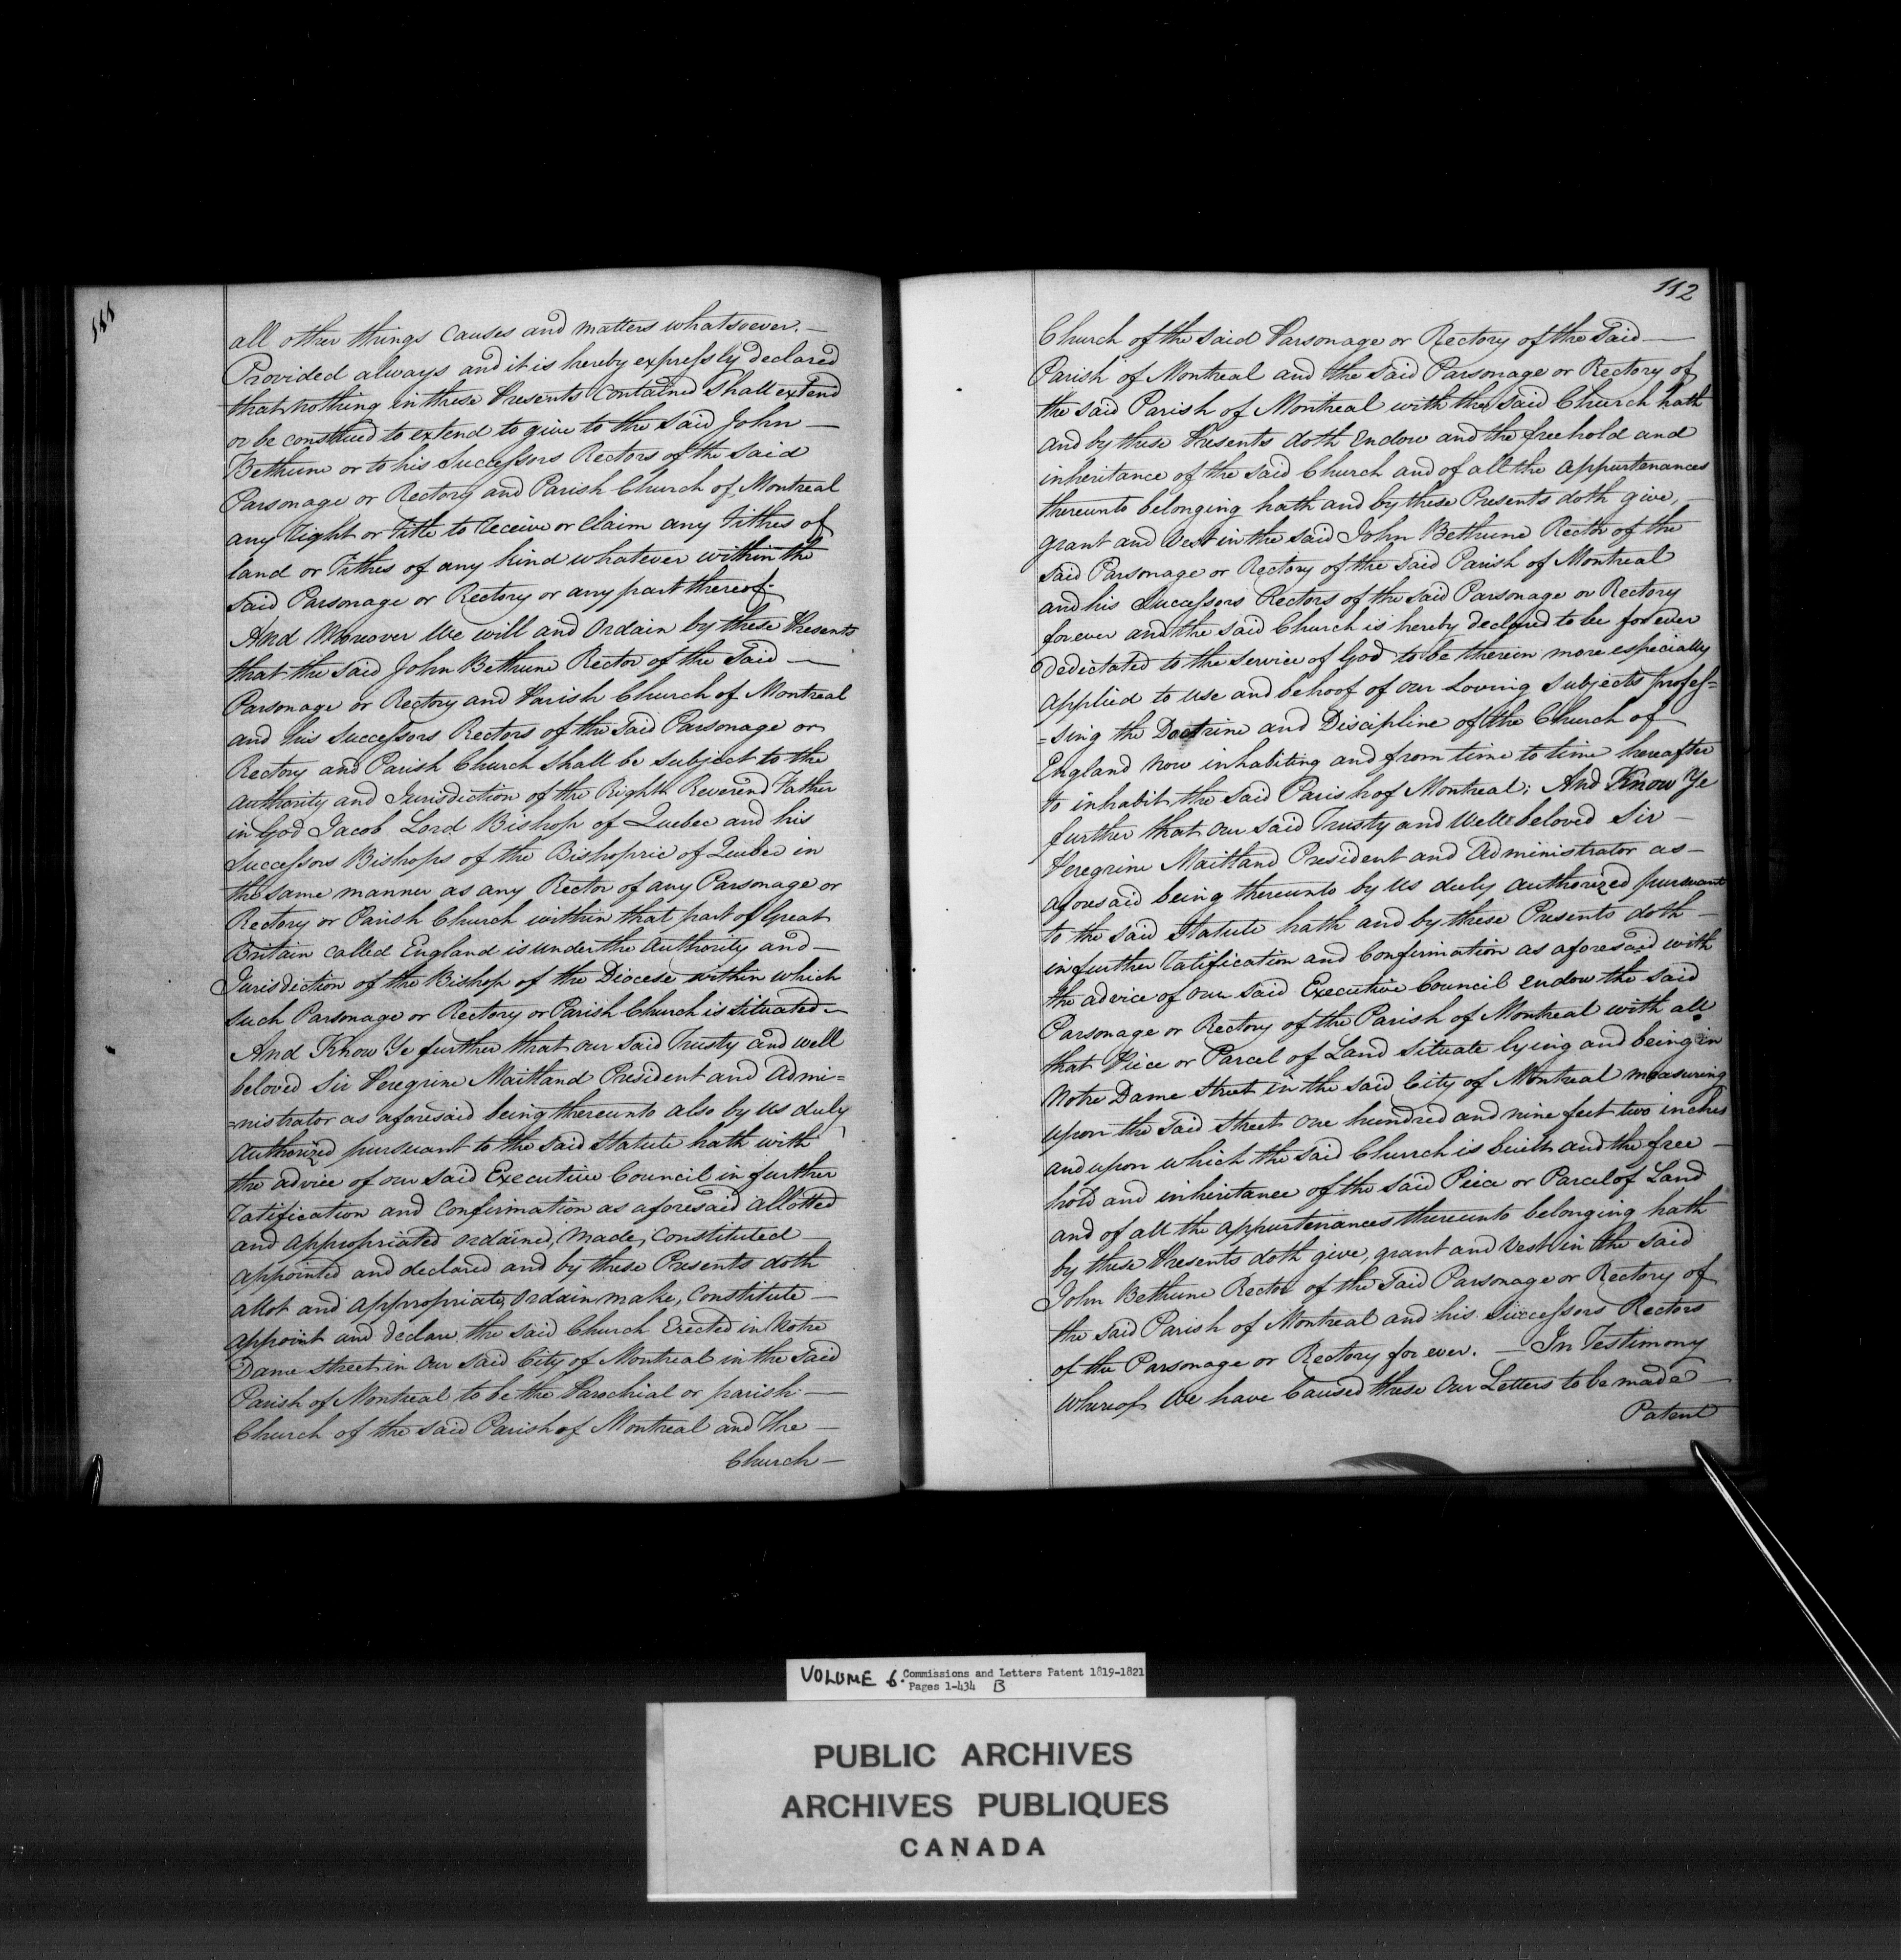 111
all other things causes and matters whatsoever. —
Provided always and it is hereby expressly declared
that nothing in these Presents contained shall extend
or be construed to extend to give to the said John —
Bethune or to his Successors Rectors of the said
Parsonage or Rectory and Parish Church of Montreal
any right or title to receive or claim any tithes of
land or tithes of any kind whatever within the
said Parsonage or Rectory or any part thereof.
And Moreover We will and Ordain by these Presents
that the said John Bethune Rector of the Said —
Parsonage or Rectory and Parish Church of Montreal
and his Successors Rectors of the said Parsonage or
Rectory and Parish Church shall be subject to the
authority and Jurisdiction of the Right Reverend Father
in God Jacob Lord Bishop of Quebec and his
Successors Bishops of the Bishopric of Quebec in
the same manner as any Rector of any Parsonage or
Rectory or Parish Church within that part of Great
Britain called England is under the authority and —
Jurisdiction of the Bishop of the Diocese within which
such Parsonage or Rectory or Parish Church is situated —
And Know Ye further that our said Trusty and well
beloved Sir Peregrine Maitland President and Admi=
=nistrator as aforesaid being thereunto also by us duly
authorized pursuant to the said Statute hath with
the advice of our said Executive Council in further
ratification and Confirmation as aforesaid allotted
and appropriated ordained, made, Constituted —
appointed and declared and by these Presents doth
allot and appropriate, ordain make, Constitute —
appoint and declare the said Church Erected in Notre
Dame Street in Our said City of Montreal in the said
Parish of Montreal to be the Parochial or parish —
Church of the said Parish of Montreal and the —
Church —
112
Church of the said Parsonage or Rectory of the Said —
Parish of Montreal and the said Parsonage or Rectory of
the said Parish of Montreal with the said Church hath
and by these Presents doth Endow and the freehold and
inheritance of the said Church and of all the appurtenances
thereunto belonging hath and by these Presents doth give, —
grant and Vest in the said John Bethune Rector of the
said Parsonage or Rectory of the said Parish of Montreal
and his Successors Rectors of the said Parsonage or Rectory
for ever and the said Church is hereby declared to be for ever
dedictated to the service of God to be therein more especially
applied to use and behoof of our Loving Subjects profes=
=sing the Doctrine and Discipline of the Church of
England now inhabiting and from time to time hereafter
to inhabit the said Parish of Montreal; And Know Ye
further that our said Trusty and Well beloved Sir —
Peregrine Maitland President and Administrator as —
aforesaid being thereunto by us duly authorized pursuant
to the said Statute hath and by these Presents doth —
in further ratification and Confirmation as aforesaid with
the advice of our said Executive Council endow the said
Parsonage or Rectory of the Parish of Montreal with all
that Piece or Parcel of Land situate lying and being in
Notre Dame Street in the said City of Montreal measuring
upon the said Street One hundred and nine feet two inches
and upon which the said Church is built and the free —
hold and inheritance of the said Piece or Parcel of Land
and of all the appurtenances thereunto belonging hath
by these Presents doth give, grant and Vest in the said
John Bethune Rector of the said Parsonage or Rectory of
the said Parish of Montreal and his Successors Rectors
of the Parsonage or Rectory for ever. — In Testimony
Whereof We have Caused these Our Letters to be made —
Patent
VOLUME 6. Commissions and Letters Patent 1819-1821
Pages 1-434 B
PUBLIC ARCHIVES
ARCHIVES PUBLIQUES
CANADA